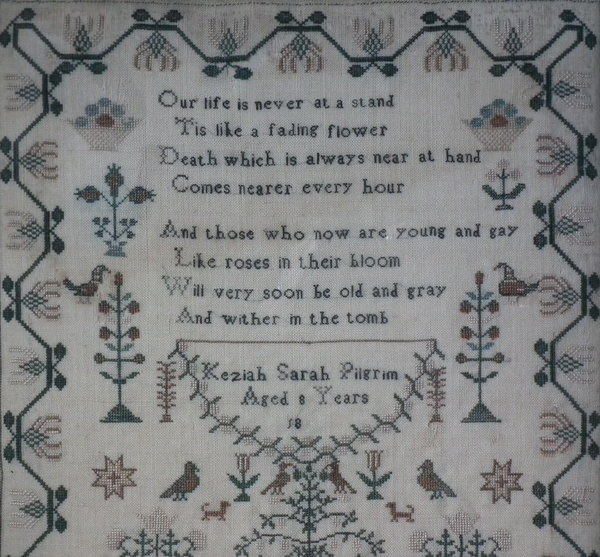 Our life is never at a stand
Tis like a fading flower
Death which is always near at hand
Comes nearer every hour
And those who now are young and gay
Like roses in their bloom
Will very soon be old and gray
And wither in the tomb
Keziah Sarah Pilgrim
Aged 8 Years
18